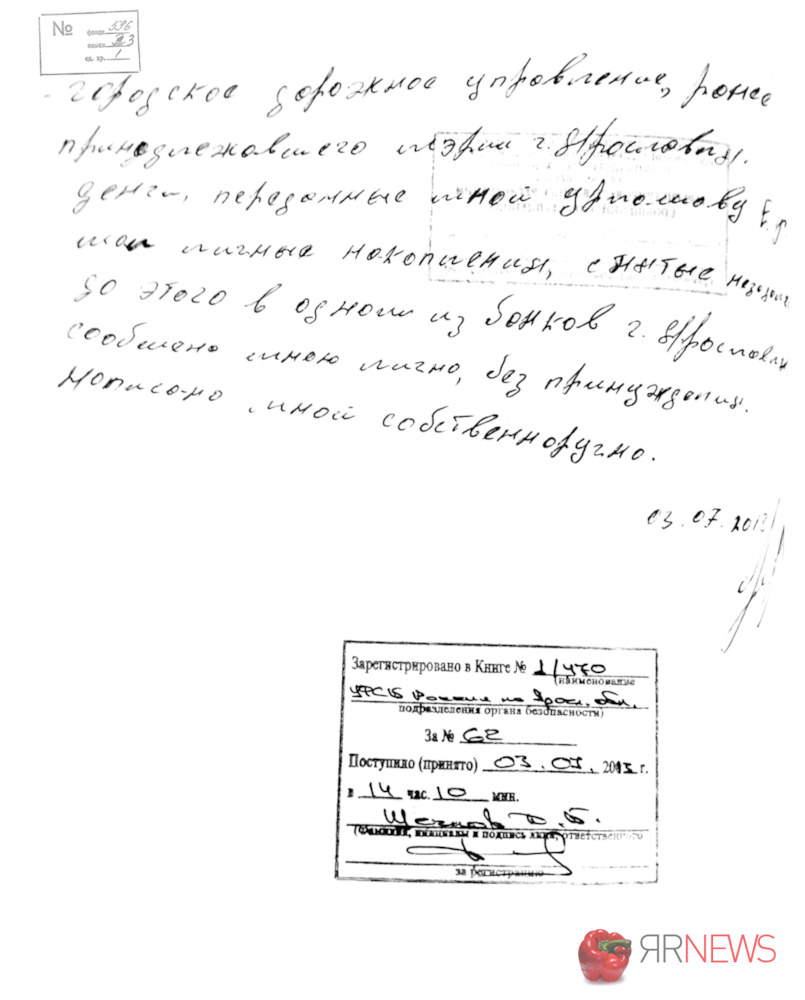 № фонд 596
опись 3
ед. хр. 1
- городское дорожное управление, ранее
принадлежавшего мэрии г. Ярославля.
Деньги, переданные мной Урлашову Е.Р.
мои личные накопления, снятые незадолго
до этого в одном из банков г. Ярославля
сообщено мною лично, без принуждения.
Написано мной собственноручно.
03.07.2013
Зарегистрировано в Книге № 1/470
(наименование
УФСБ России по Яросл. обл.
подразделения органа безопасности)
За № 62
Поступило (принято) 03.07. 2013 г.
в 14 час. 10 мин.
Д.Б.
(Фамилия, инициалы и подпись лица, ответственного
за регистрацию
ЯRNEWS